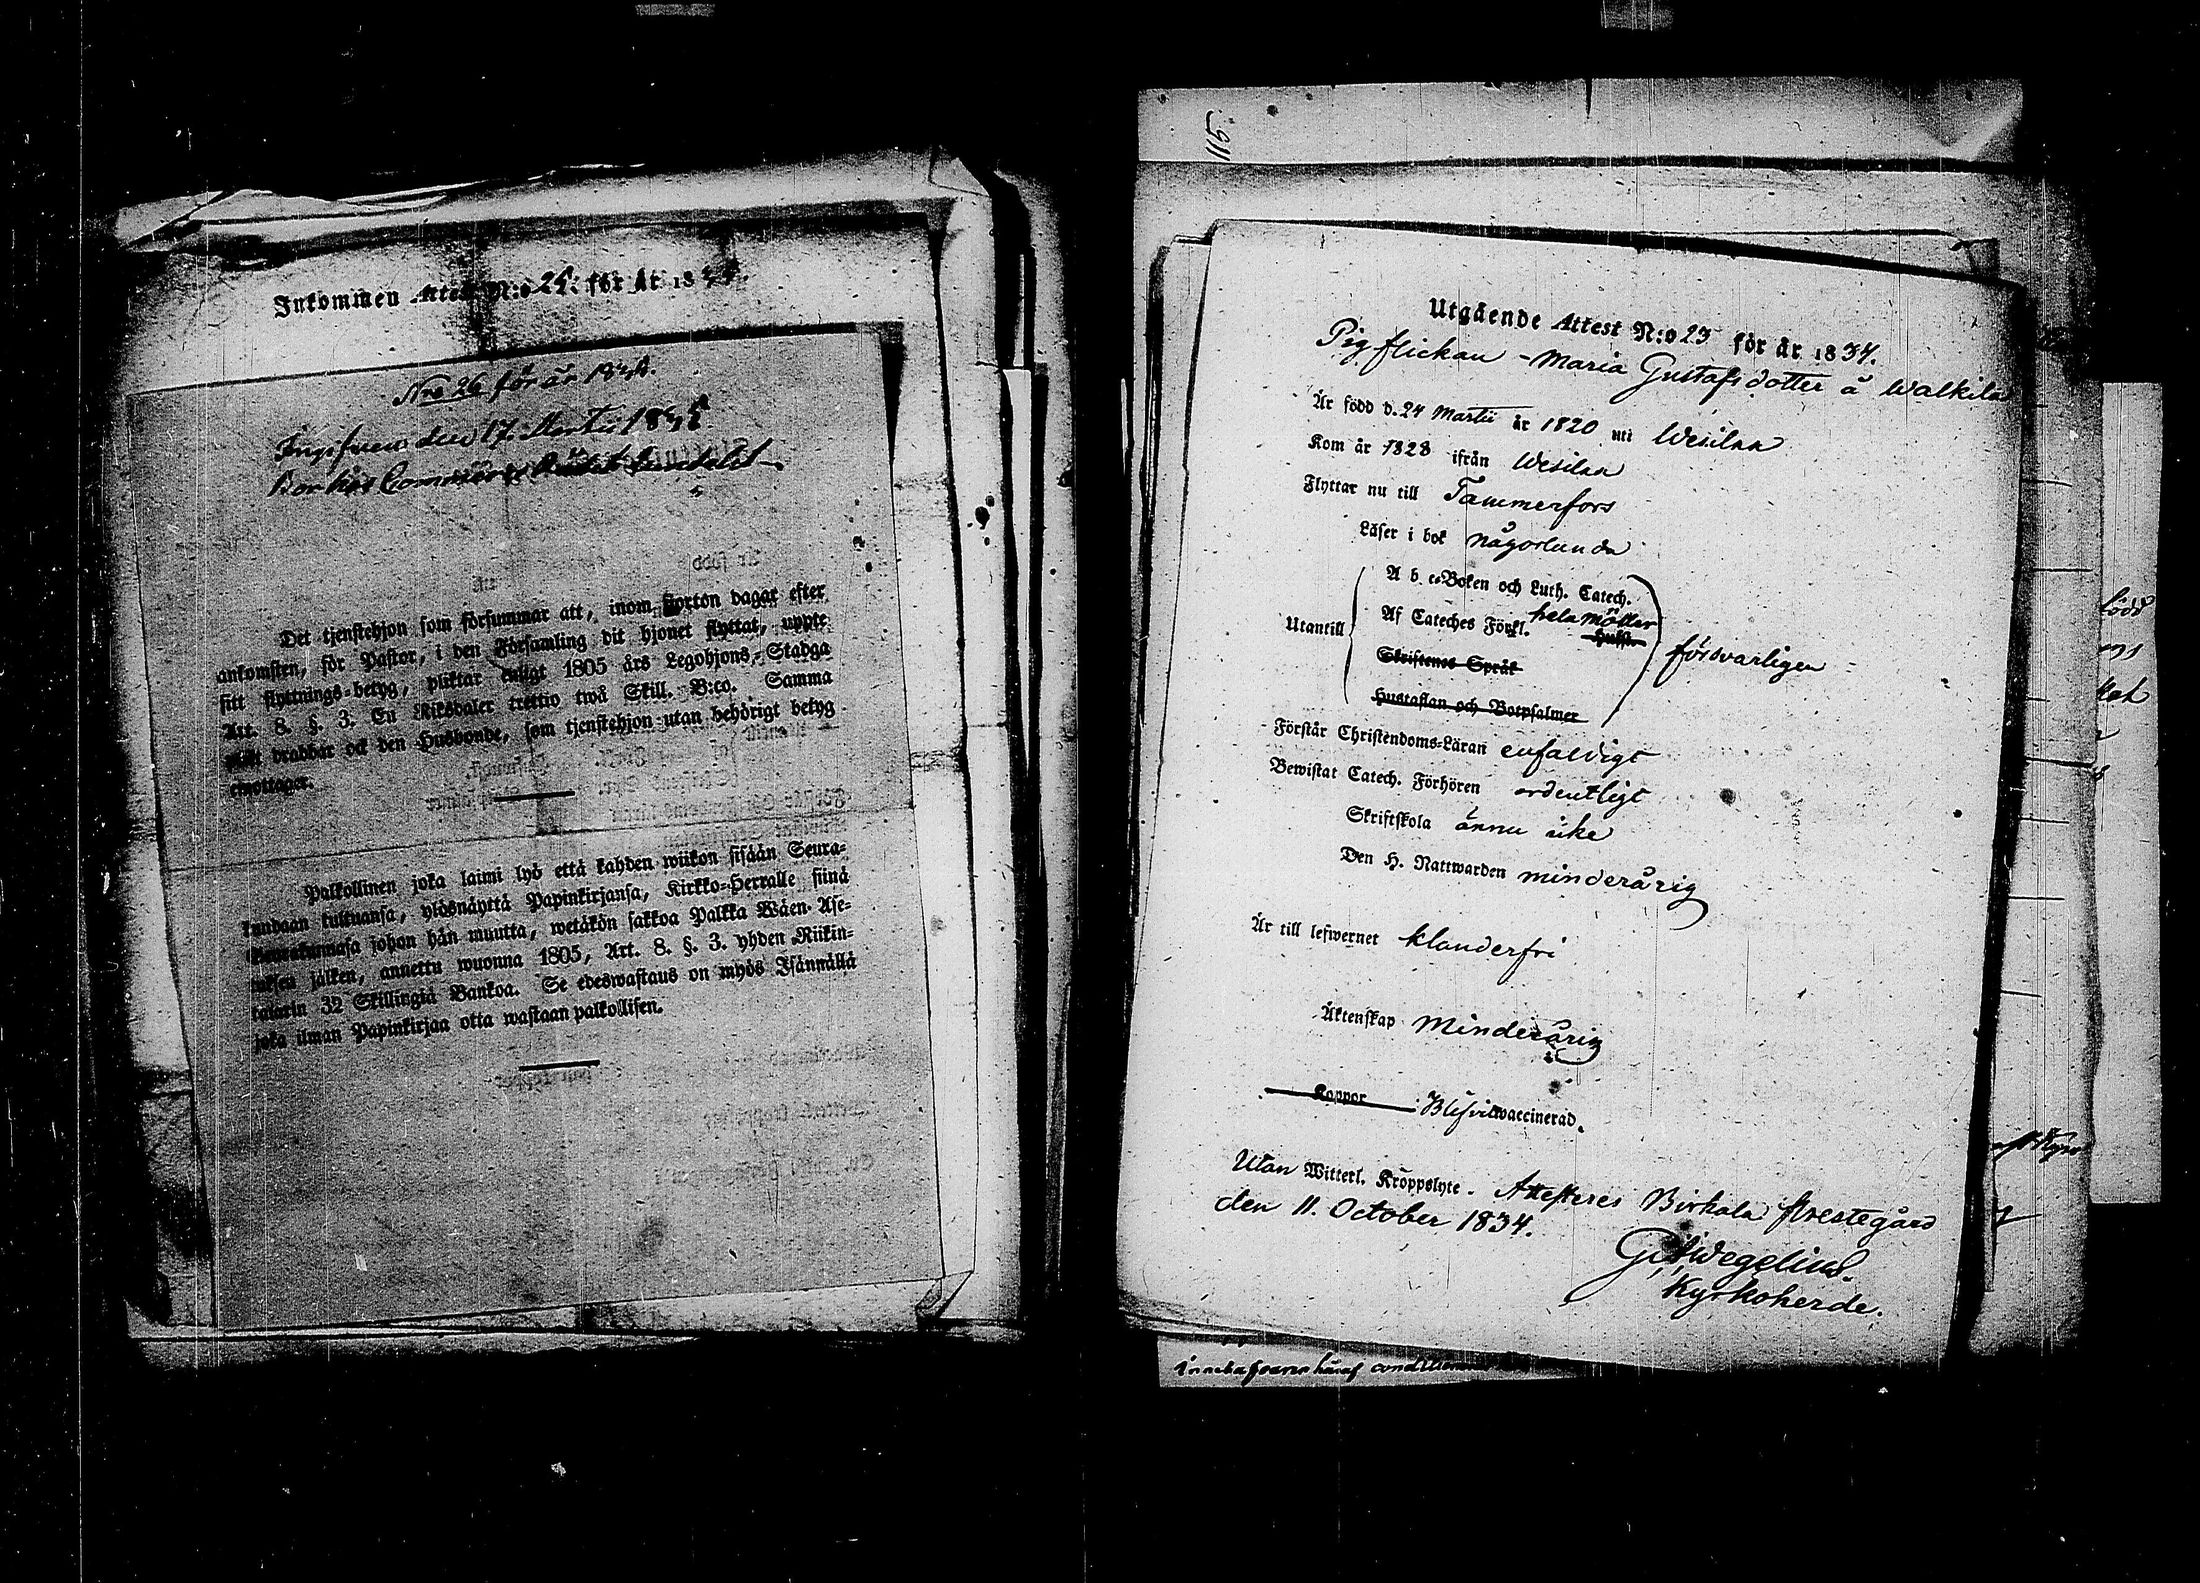 Inkommen Attest N:o för år 18
Nro 26 för år 183
den 17. Martii 183
Bor hos
Det tjenstehjon som försummar att, inom fjorton dagar efter
ankomsten, för Pastor, i den Församling dit hjonet flyttat, uppte
sitt flyttnings-betyg, pliktar enligt 1805 års Legohjons-Stadga
Art. 8. §. 3. En Riksdaler trettio twå Skill. B:co. Samma
plikt drabbar ock den Husbonde, som tjenstehjon utan behörigt betyg
emottager.
Palkollinen joka laimi lyö että kahden wiikon sisään Seura-
kundaan tultuansa, ylösnäyttä Papinkirjansa, Kirkko-Herralle siinä
Seurakunnasa johon hän muutta, wetäkön sakkoa Palkka Wäen Ase-
tuksen jälken, annettu wuonna 1805, Art. 8. §. 3. yhden Riikin-
talarin 32 Skillingiä Bankoa. Se edeswastaus on myös Isännällä
joka ilman Papinkirjaa otta wastaan palkollisen.
116
Utgående Attest N:o 23 för år 1834.
Pigflickan - Maria Gustafsdotter å Walkila
Är född d. 24 Martii år 1820 uti Wesilax
Kom år 1828 ifrån Wesilax
Flyttar nu till Tammerfors
Läser i bok någorlunda
A b c-Boken och Luth. Catech.
Af Cateches Förkl. hela möller
Utantill
Skriftenes Språk
försvarligen
Hustaflan och Botpsalmer
Förstår Christendoms-Läran enfaldigt
Bewistat Catech. Förhören ordentligt
Skriftskola ännu icke
Den H. Nattwarden minderårig
Är till lefwernet klanderfri
Äktenskap Minderårig
Koppor Blifvit waccinerad.
Utan Witterl. Kroppslyte. Attesteres Birkala Prestegård
den 11. October 1834.
Wegelius.
Kyrkoherde.
född